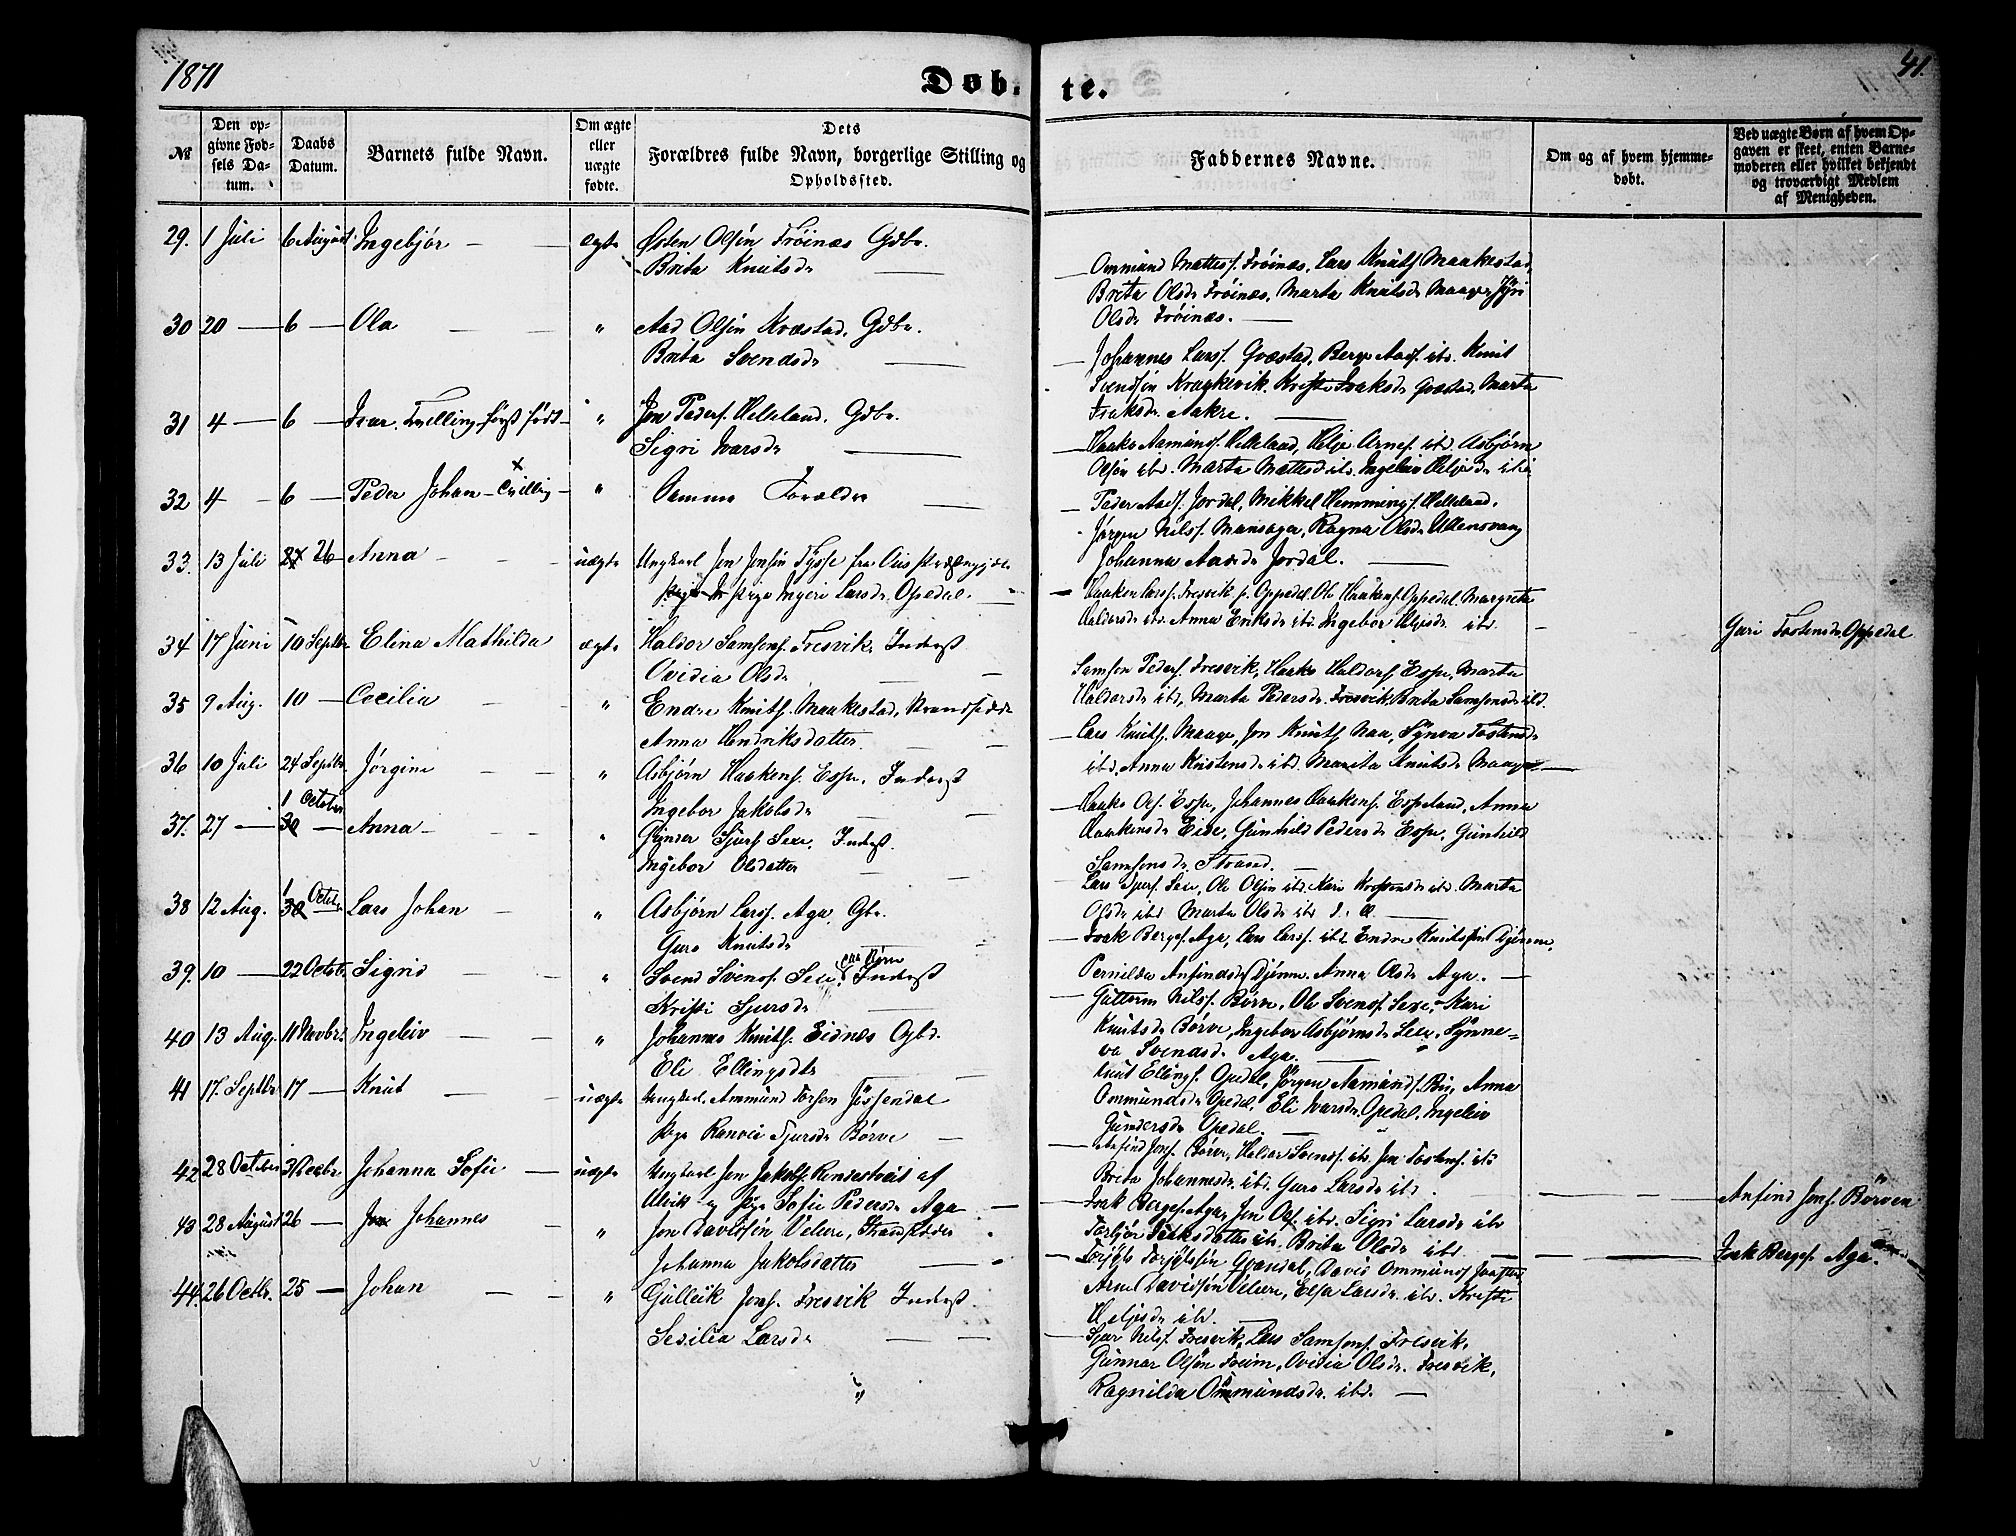 1871
Døbte.
41.
№
Den opgivne Fødsels Datum.
Daabs Datum.
Barnets fulde Navn.
Om ægte eller uægte fødte.
Dets Forældres fulde Navn, borgerlige Stilling og Opholdssted.
Faddernes Navne.
Om og af hvem hjemmedøbt.
Ved uægte Børn af hvem Opgaven er skeet, enten Barnemoderen eller hvilket bekjendt og troværdigt Medlem af Menigheden.
29. 1 Juli 6 August Ingebjør ægte Østen Olsøn Frøinæs Gdbr.
Brita Knutsdr
Ommund Mattess. Frøinæs, Lars Knuts. Maakestad,
Brita Olsdr Frøinæs, Marta Knutsdr Maage,
Olsdr Frøinæs.
30 20 — 6 — Ola " Aad Olsøn Kvæstad, Gdbr.
Brita Svendsdr
Johannes Larss. Qvæstad, Berge Aads. ibd. Knut
Svendsøn Kragkevik, Kristi Isaksdr Qvæstad, Marta
Isaksdr Aakre.
31 4 — 6 — Ivar. Tvilling først født " Jon Peders. Helleland. Gdbr.
Sigri Ivarsdr
Haako Aamunds. Helleland, Helje Arnes. ibd. Asbjørn
Olsøn ibd. Marta Mattesd ibd. Ingeleiv Heljesdr ibd.
32 4 — 6 — Peder Johan — Tvilling " Samme Forældre
Peder Aads. Jordal, Mikkel Hemmings. Helleland.
Jørgen Nilss. Mansager, Ragna Olsdr Ullensvang
Johanna Aadsdr Jordal.
33. 13 Juli 26 Anna uægte Ungkarl Jon Jonsøn Tysse fra
Pige Ingeri Larsdr Opedal.
Haaken Larss. Fresvik p. Oppedal, Ole Haakens. Oppedal, Margrete
Haldorsdr ibd. Anna Eriksdr ibd. Ingebor Heljesdr ibd.
Guri Tostensdr Oppedal
34 17 Juni 10 Septbr Elina Mathilda ægte Haldor Samsons. Fresvik, Inderst
Ovidia Olsdr
Samson Peders. Fresvik, Haako Haldors. Espe, Marta
Haldorsdr ibd, Marta Pedersdr Fresvik, Brita Samsonsdr ibd.
35 9 Aug. 10 — Cecilia " Endre Knuts. Maakestad, Strandsidder
Anna Hendriksdatter
Lars Knuts. Maage, Jon Knuts. Naa, Synva Tostensdr
ibd, Anna Kristensdr ibd. Marita Knutsdr Maage
36 10 Juli 24 Septbr. Jørgine " Asbjørn Haakens. Espe, Inderst
Ingebor Jakobsdr
Haako Ols. Espe, Johannes Haakens. Espeland, Anna
Haakensdr Eide, Gunhild Pedersdr Espe, Gunhild
Samsonsdr Strand.
37. 27 — 1 October Anna " Gunder Sjurs. Sexe, Inderst.
Ingebor Olsdatter
Lars Sjurs. Sexe, Ole Olsøn ibd. Kari ibd. Marta
Olsdr ibd Marta Olsdr ibd
38 12 Aug. 1 Octobr Lars Johan " Asbjørn Larss. Aga, Gbr.
Guro Knutsdr
Isak Berges. Aga, Lars Larss. ibd. Endre Knutssøn Djønne,
Pernilda Anfindsdr Djønne, Anna Olsdr Aga.
39. 10 — 22 Octobr. Sigrid " Svend Svens. Sexe, Inderst paa Børve
Kristi Sjursdr
Guttorm Nilss. Børve, Ole Svens. Sexe, Kari
Knutsdr Børve, Ingebor Asbjørnsdr Sexe, Synneva
Svendsd. Aga.
40 13 Aug. Novbr. Ingeleiv " Johannes Knuts. Eidnæs Gbd.
Eli Ellingsdtr
Knut Ellings. Opedal, Jørgen Aamunds. Bu, Anna
Ommundsdr Opedal, Eli Ivarsdr Opedal, Ingeleiv
Gundersdr Opedal.
41 17. Septbr 17 — Knut uægte Ungkarl. Ammund Torsen Jøssendal
Pige Ranvei Sjursdr Børve
Anfind Jons. Børve, Haldor Svends. ibd, Jon Tostens. ibd
Brita Johannesdr. ibd. Guro Larsdr ibd.
Anfind Jons. Børven
42 28 October 3 Decbr. Johanna Sofie uægte Ungkarl Jon Jakobs. Rondestveit af
Ulvik og Pige Sofie Pedersdr Aga
Isak Berges. Aga, Jon Ols. ibd. Sigri Larsdr ibd
Torbjør Isaksdatter ibd, Brita Olsdr ibd.
Isak Berges. Aga
43 28 August 26 — Johannes " Jon Davidsøn Velure, Strandsidder
Johanna Jakobsdatter
David Ommunds.
Arne Davidsøn Velure, Elsa Larsdr. ibd. Kristi
Heljesdr ibd.
44. 26 Octbr. 25 — Johan " Gulleik Jons. Fresvik Inderst.
Sesilia Larsdr
Sjur Nilss. Fresvik, Lars Samsons. Fresvik,
Gunnar Olsøn Freim, Ovidia Olsdr. Fresvik,
Ragnilda Ommundsdr. ibd.